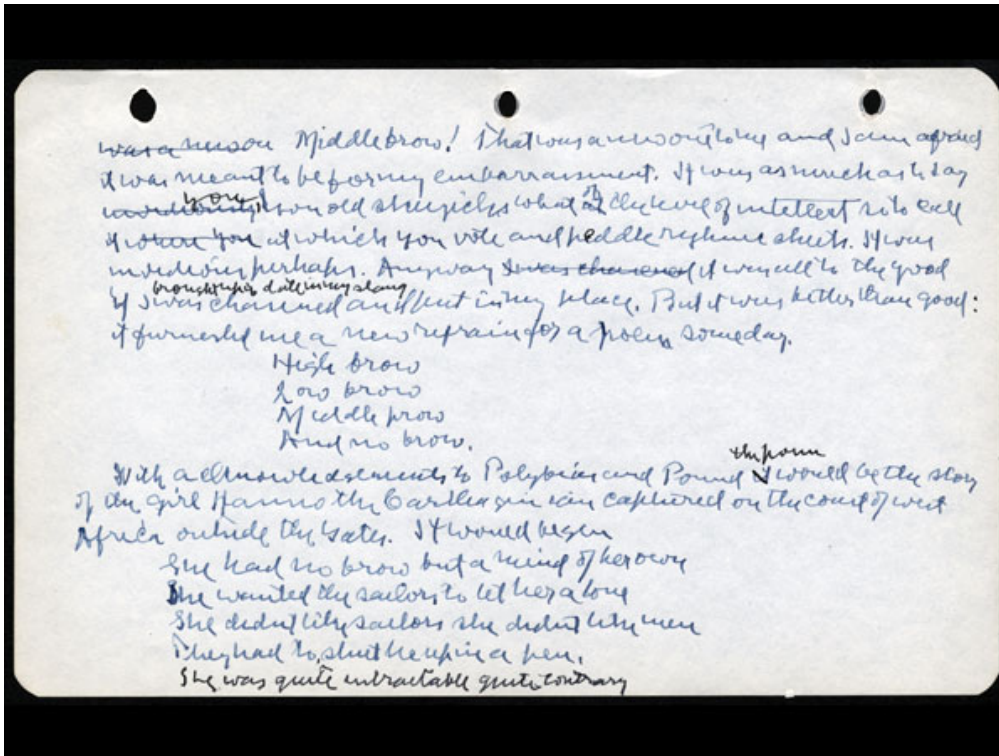 was a new one Middlebrow! That was a new one to me and I am afraid
it was meant to be for my embarrassment. It was as much as to say
you old skeezicks what is the level of intellect so to call
it where you at which you vote and peddle rhyme sheets. It was
invidious perhaps. Anyway I was charmed it was all to the good
brought up to date in my slang
if I was chastened and put in my place. But it was better than good:
it furnished me a new refrain for a poem someday.
High brow
Low brow
Middle brow
And no brow.
the poem
With acknowledgements to Polybius and Pound would be the story
of the girl Hanno the Carthaginian captured on the coast of west
Africa outside the Gates. It would begin
She had no brow but a mind of her own
She wanted the sailors to let her alone
She didnt like sailors she didnt like men
They had to shut her up in a pen.
She was quite intractable quite contrary